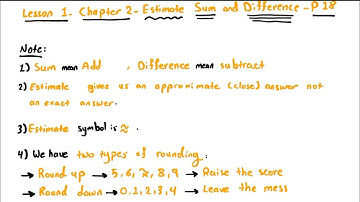 Lesson 1 - Chapter 2 - Estimate Sum and Difference - P 18
Note:
1) Sum mean Add , Difference mean subtract
2) Estimate gives us an approximate (close) answer not
an exact answer.
3) Estimate symbol is ≈ .
4) We have two types of rounding:
→ Round up → 5, 6, 7, 8, 9 → Raise the score
→ Round down → 0, 1, 2, 3, 4 → Leave the mess